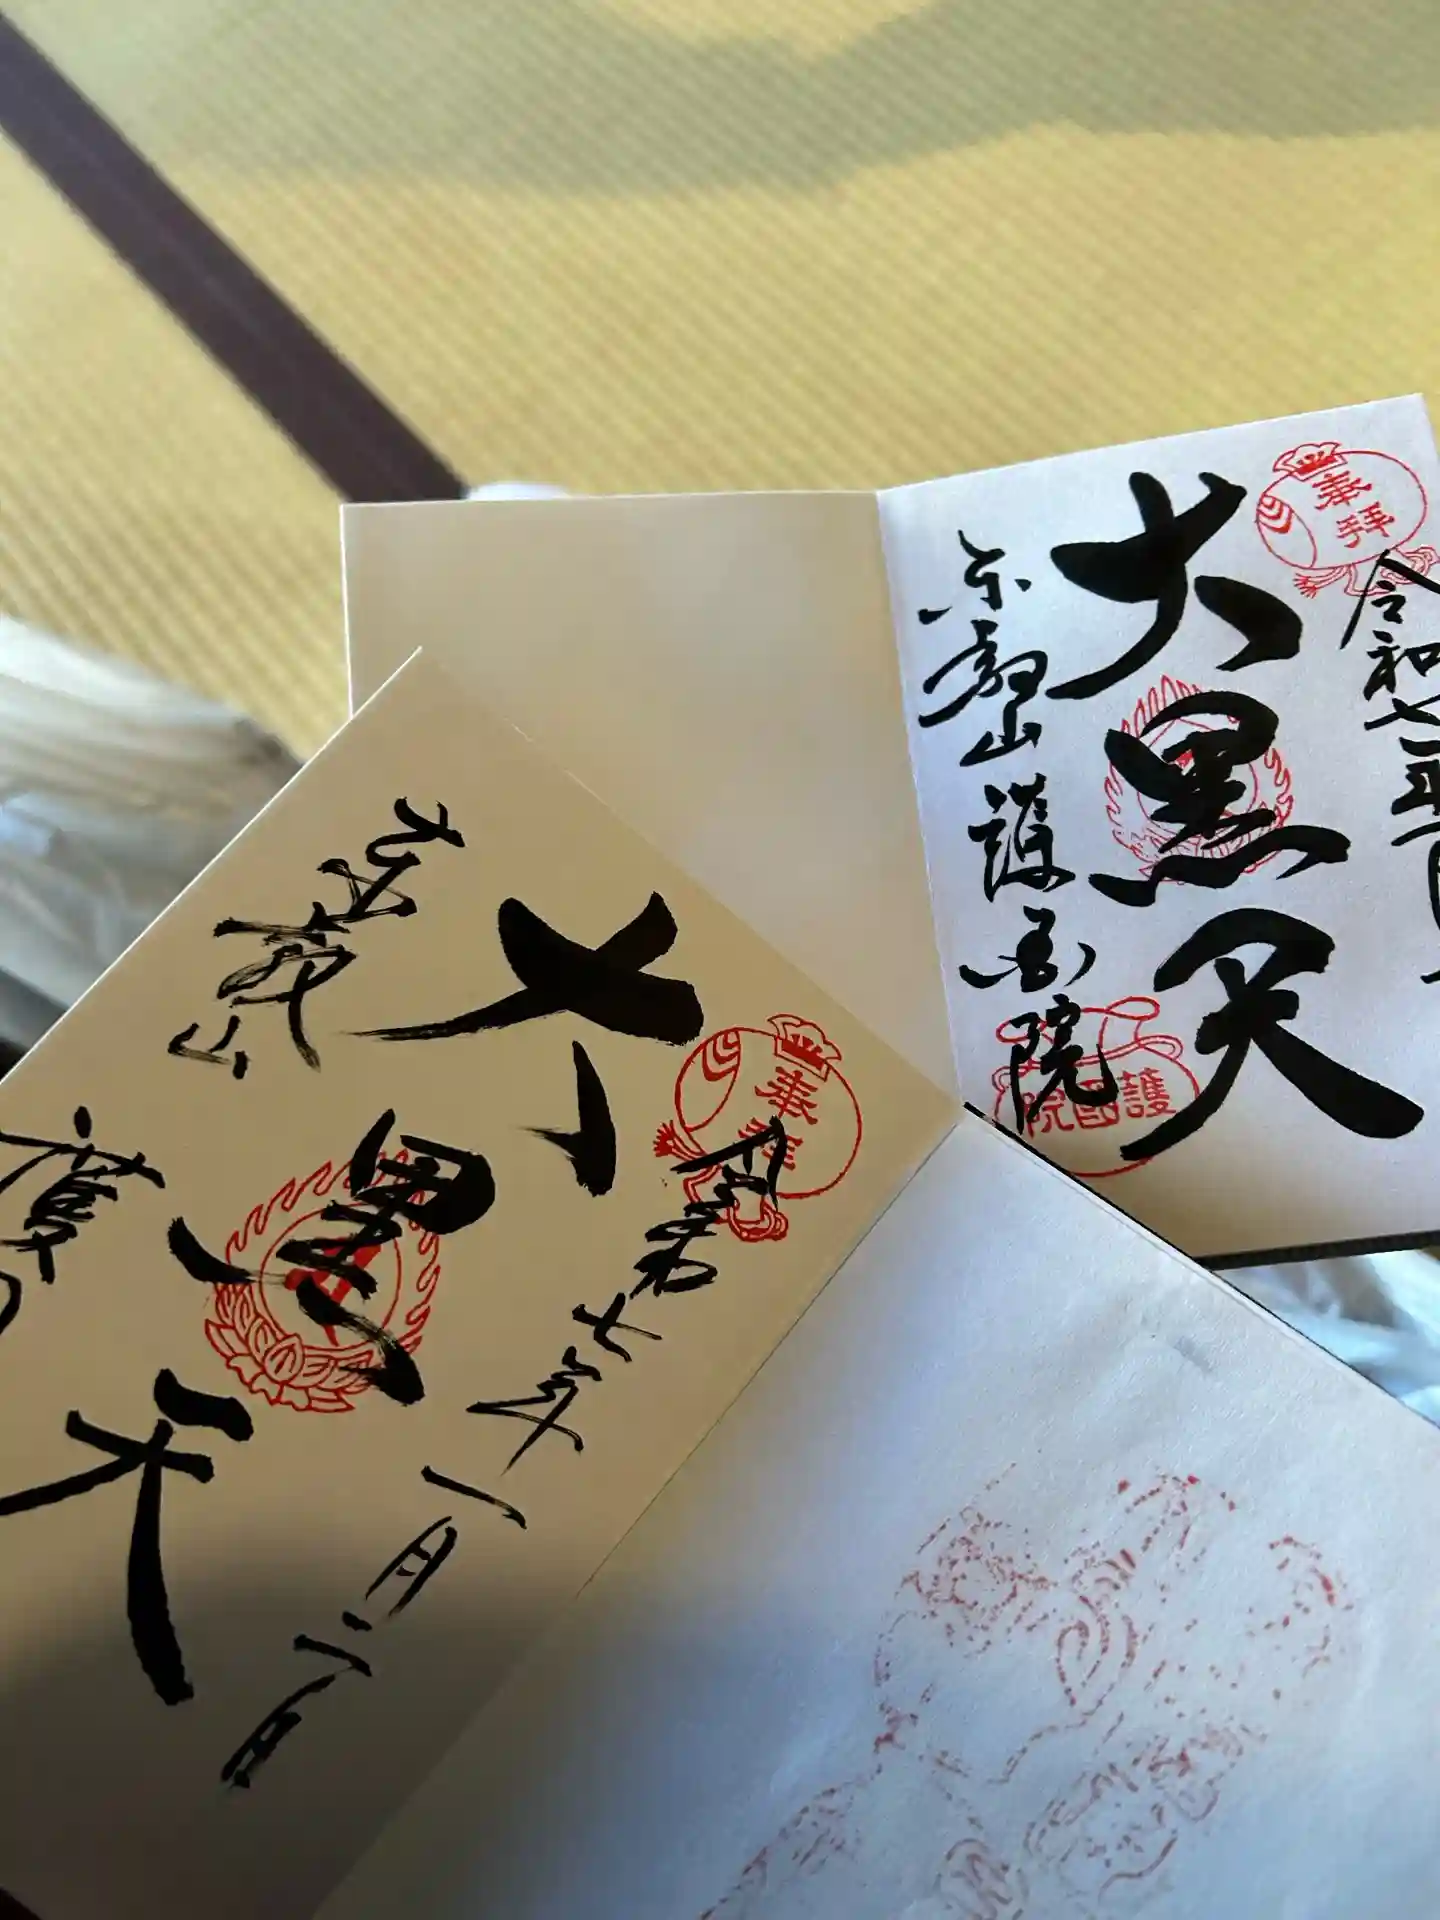 奉拝
令和七年
大黒天
東叡山護国院
護國院
奉拝
令和七年一月二日
大黒天
東叡山
護